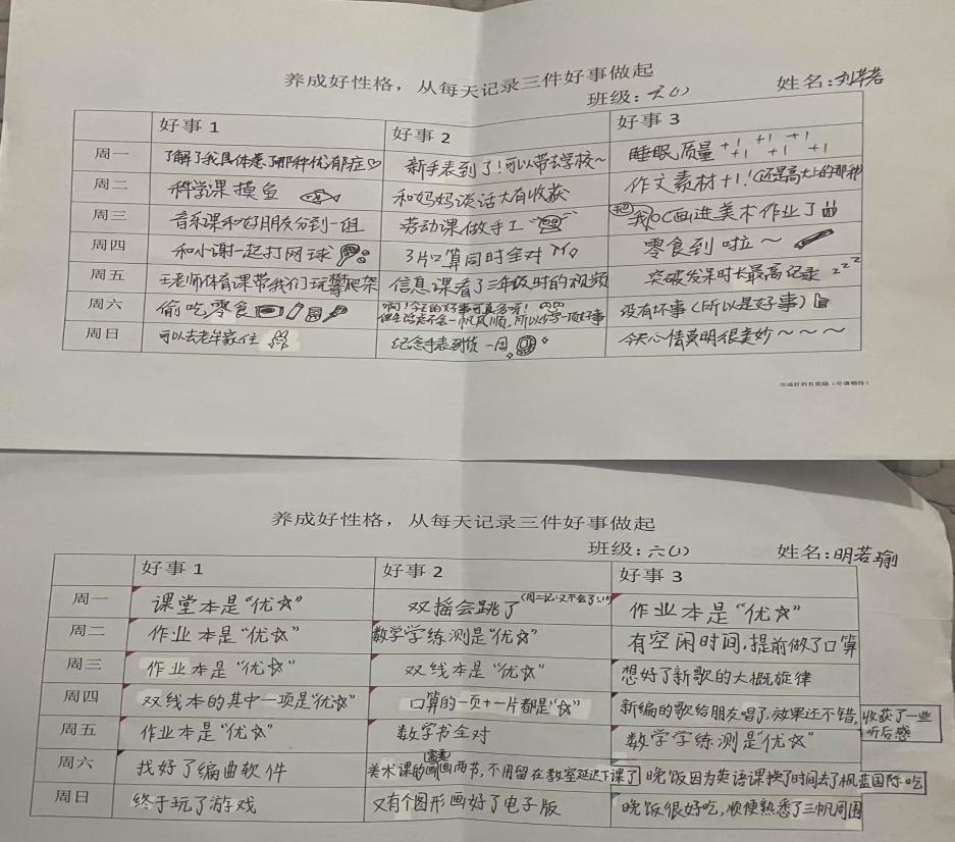 养成好性格，从每天记录三件好事做起
班级：六(1) 姓名：刘芊若
好事1 好事2 好事3
周一 了解了我具体患了哪种忧郁症 新手表到了！可以带去学校~ 睡眠质量+1 +1 +1 +1 +1 +1
周二 科学课摸鱼 和妈妈谈话大有收获 作文素材+1！(还是高大上的那种
周三 音乐课和好朋友分到一组 劳动课做手工 把我OC画进美术作业了
周四 和小谢一起打网球 3片口算同时全对 零食到啦～
周五 王老师体育课带我们玩攀爬架 信息课看了三年级时的视频 突破发呆时长最高记录 zzz
周六 偷吃零食 啊！今天的好事可真多呀！ 没有坏事(所以是好事)
但生活总不会一帆风顺，所以少写一项好事
周日 可以去老牟家住 纪念手表到货一周 今天心情莫明很美妙～～～～
养成好性格，从每天记录三件好事做起
班级：六(1) 姓名：明若瑜
好事1 好事2 好事3
周一 课堂本是“优☆” 双摇会跳了 作业本是“优☆”
周二 作业本是“优☆” 数学学练测是“优☆” 有空闲时间，提前做了口算
周三 作业本是“优☆” 双线本是“优☆” 想好了新歌的大概旋律
周四 双线本的其中一项是“优☆” 口算的一页+一片都是“☆” 新编的歌给朋友唱了，效果还不错，收获了一些听后感
周五 作业本是“优☆” 数学书全对 数学学练测是“优☆”
周六 找好了编曲软件 美术课的画需要画两节，不用留在教室延迟下课了 晚饭因为英语课换了时间去了枫蓝国际吃
周日 终于玩了游戏 又有个图形画好了电子版 晚饭很好吃，顺便熟悉了三帆周围